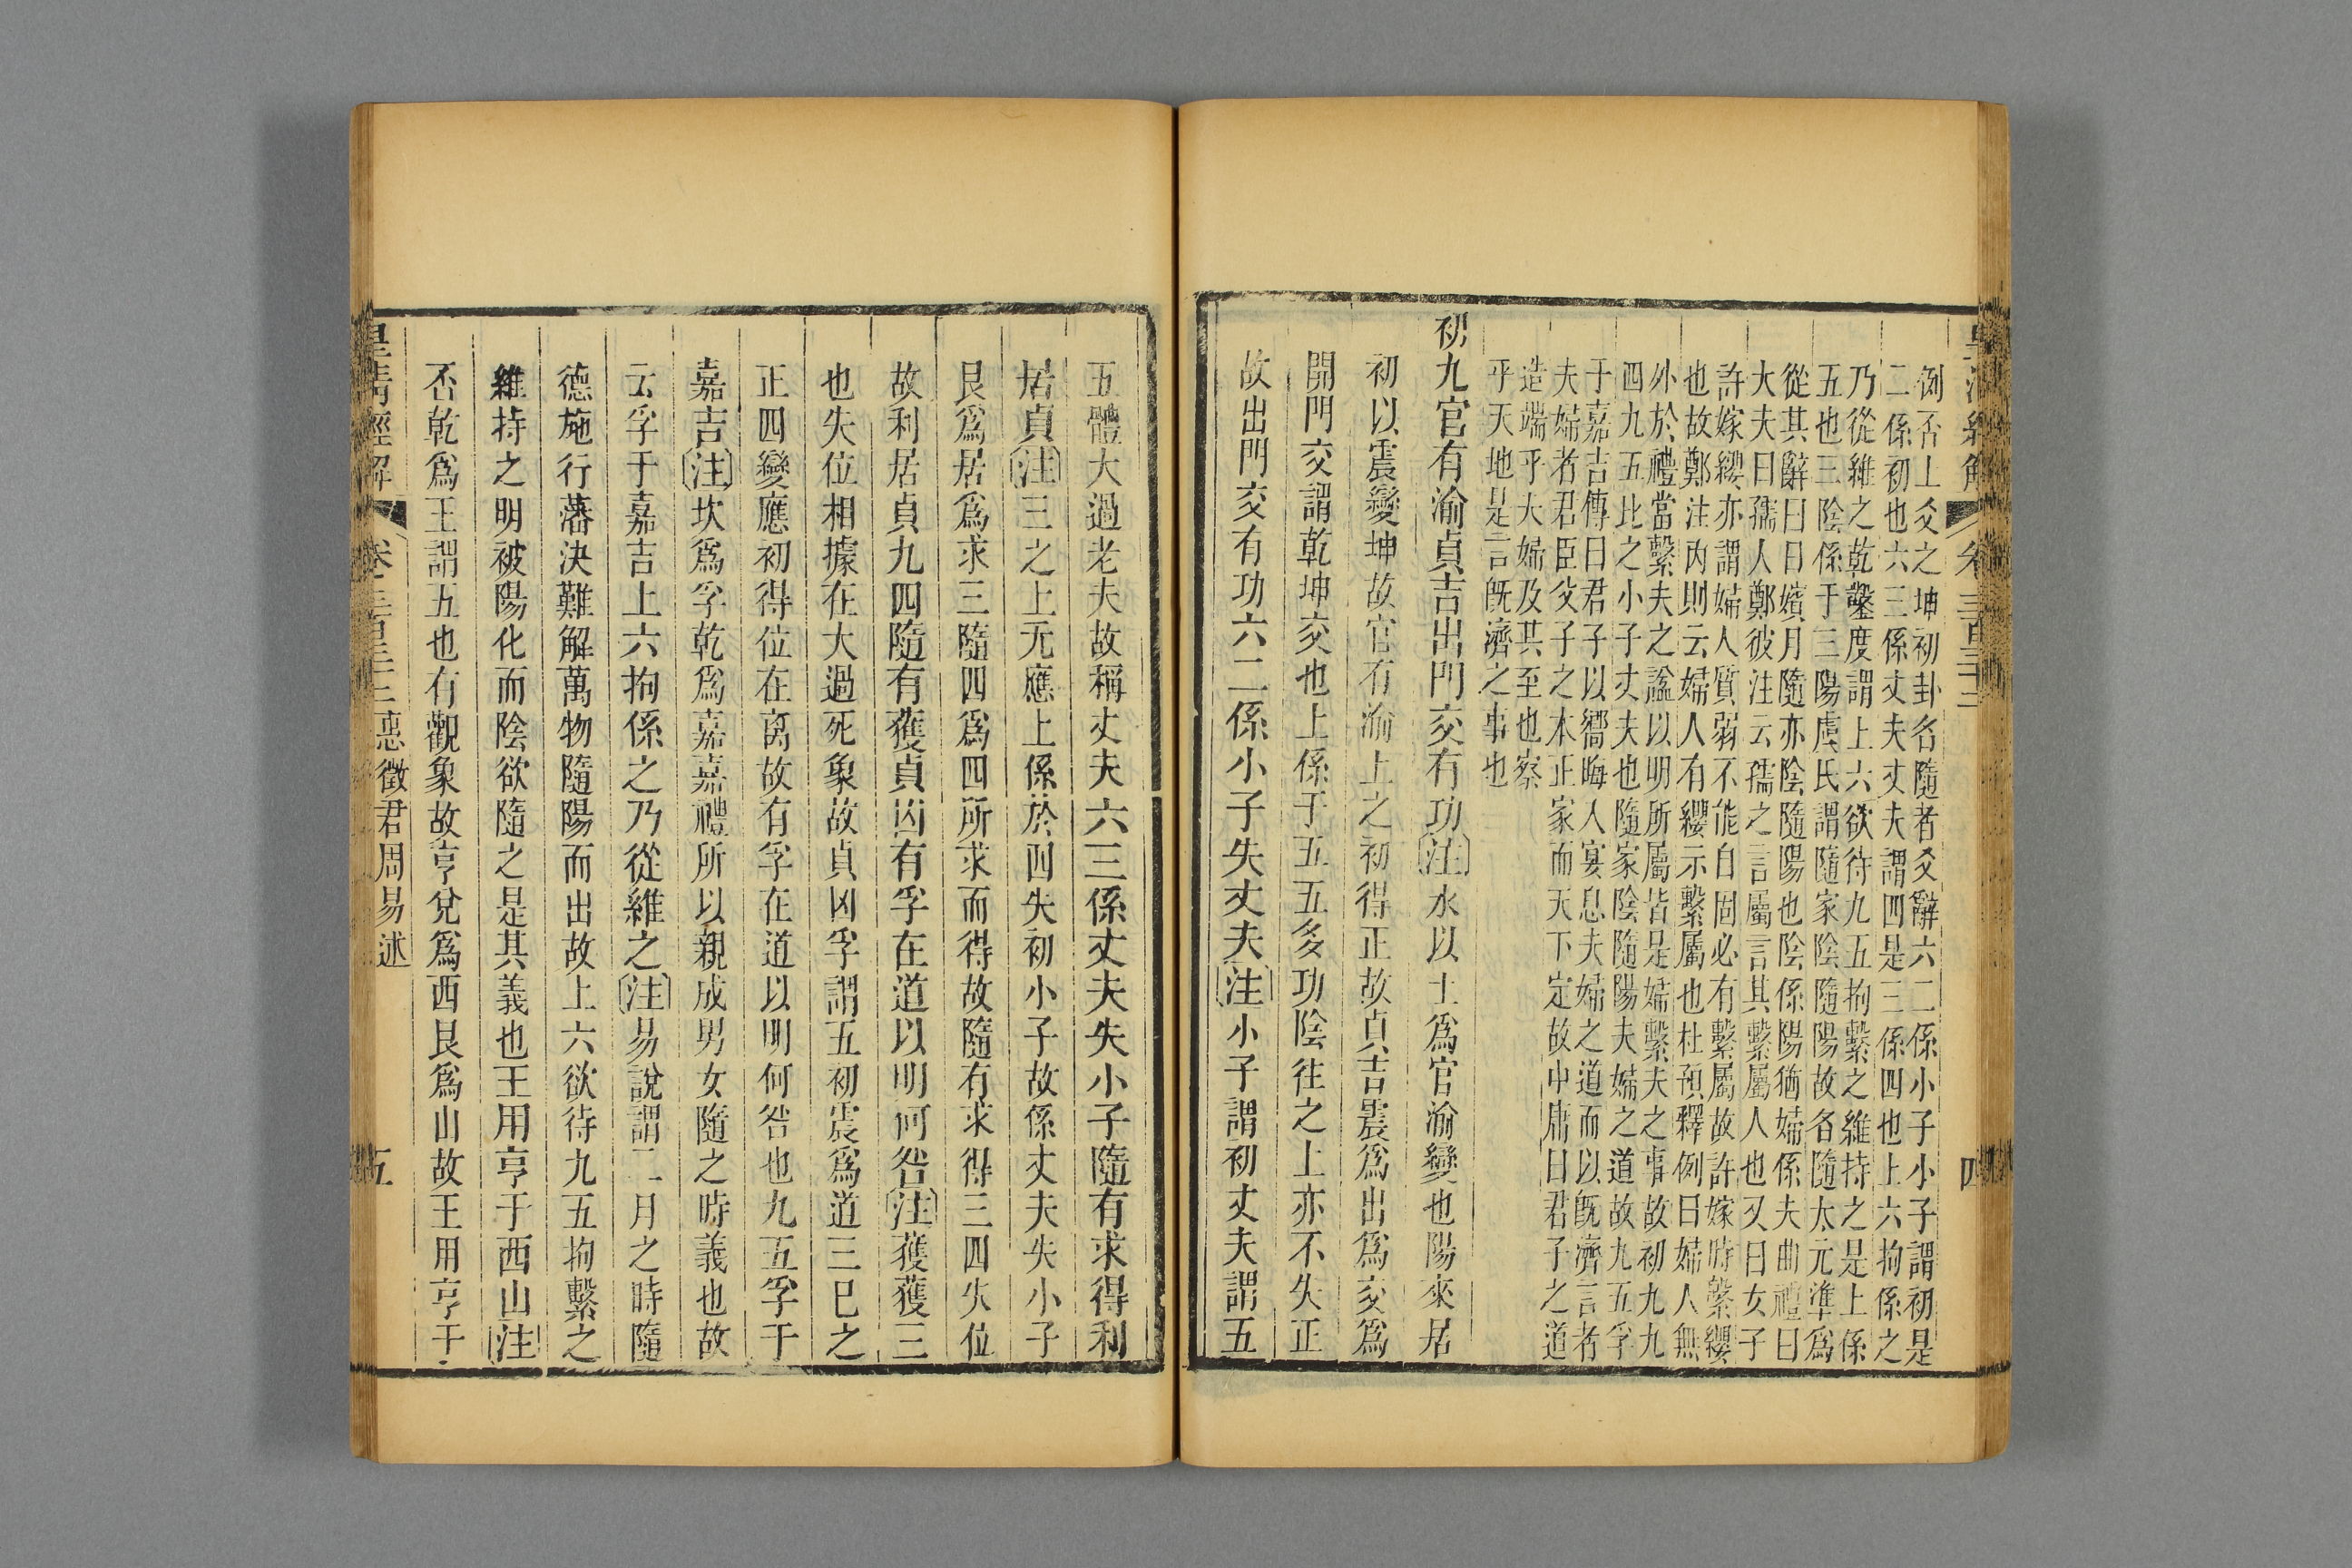 皇清經解 卷三百三十三 四
例否上爻之坤初卦名隨者爻辭六二係小子小子謂初是
二係初也六三係丈夫丈夫謂四是三係四也上六拘係之
乃從維之乾鑿度謂上六欲待九五拘繫之維持之是上係
五也三陰係于三陽虞氏謂隨家陰隨陽故名隨太元準爲
從其辭曰日嬪月隨亦陰隨陽也陰係陽猶婦係夫曲禮曰
大夫曰孺人鄭彼注云孺之言屬言其繫屬人也又曰女子
許嫁纓亦謂婦人質弱不能自固必有繫屬故許嫁時繫纓
也故鄭注內則云婦人有纓示繫屬也杜預釋例曰婦人無
外於禮當繫夫之諡以明所屬皆是婦繫夫之事故初九九
四九五比之小子丈夫也隨家陰隨陽夫婦之道故九五孚
于嘉吉傳曰君子以嚮晦入宴息夫婦之道而以既濟言者
夫婦者君臣父子之本正家而天下定故中庸曰君子之道
造端乎大婦及其至也察
乎天地是言既濟之事也
初九官有渝貞吉出門交有功注水以土爲官渝變也陽來居
初以震變坤故官有渝上之初得正故貞吉震爲出爲交爲
開門交謂乾坤交也上係于五五多功陰往之上亦不失正
故出門交有功六二係小子失丈夫注小子謂初丈夫謂五
五體大過老夫故稱丈夫六三係丈夫失小子隨有求得利
居貞注三之上无應上係於四失初小子故係丈夫失小子
艮爲居爲求三隨四爲四所求而得故隨有求得三四失位
故利居貞九四隨有獲貞凶有孚在道以明何咎注獲獲三
也失位相據在大過死象故貞凶孚謂五初震爲道三巳之
正四變應初得位在离故有孚在道以明何咎也九五孚于
嘉吉注坎爲孚乾爲嘉嘉禮所以親成男女隨之時義也故
云孚于嘉吉上六拘係之乃從維之注易說謂二月之時隨
德施行藩決難解萬物隨陽而出故上六欲待九五拘繫之
維持之明被陽化而陰欲隨之是其義也王用亨于西山注
否乾爲王謂五也有觀象故亨兌爲西艮爲山故王用亨于
皇清經解 卷三百三十三 惠徵君周易述 五